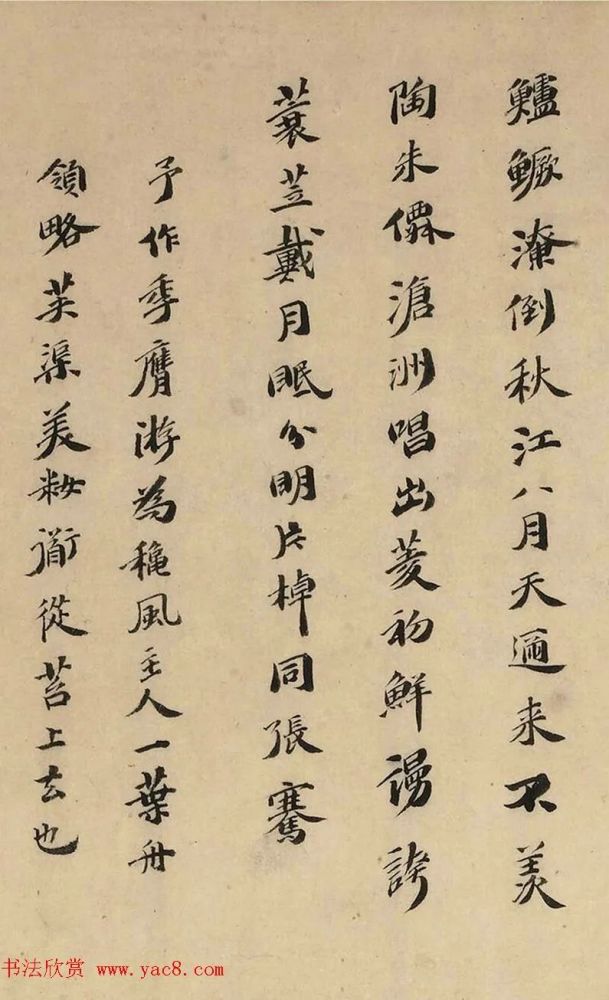 鱸鱖潦倒秋江八月天邇来不羨
陶朱僊滄洲唱出菱初鮮謾誇
蓑苙戴月眠分明片棹同張騫
予作季鷹游為穐風主人一葉舟
領略芙渠美籹衜從苕上去也
书法欣赏 www.yac8.com